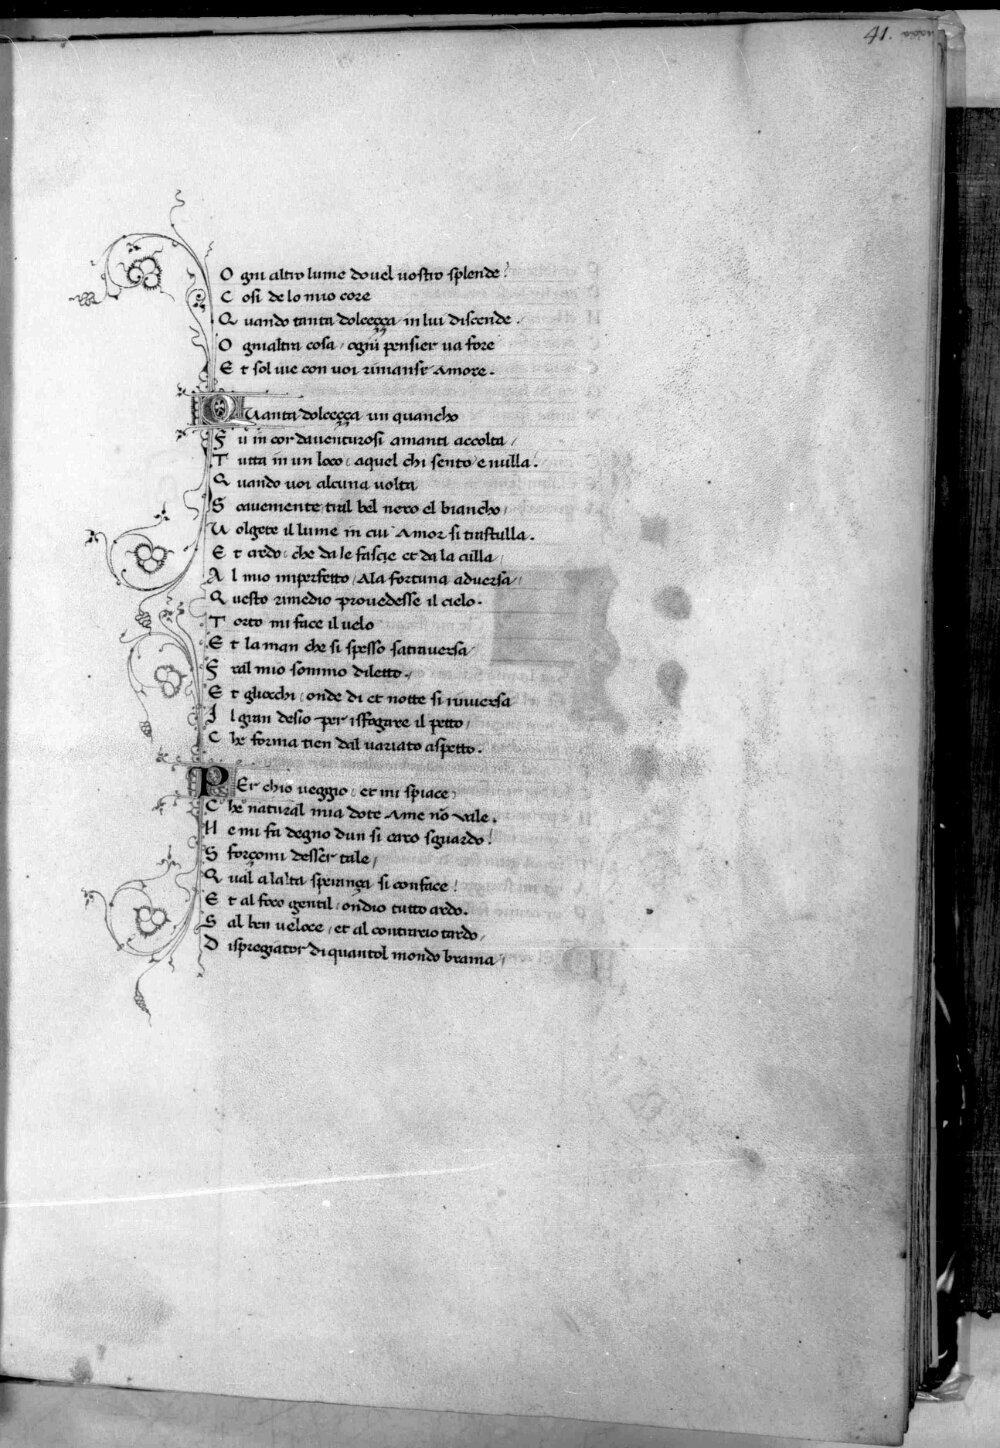 41.
O gni altro lume dovel vostro splende!
C osi de lo mio core
Q uando tanta dolceçça in lui discende.
O gnialtra cosa / ogni pensier va fore
E t sol ivie con voi rimanse Amore.
QVanta dolceçça un quancho
F u in cor daventurosi amanti accolta /
T utta in un loco: aquel chi sento e nulla.
Q uando voi alcuna volta
S oavemente tral bel nero el biancho /
V olgete il lume in cui Amor si trastulla.
E t credo: che da le fascie et da la culla /
A l mio imperfetto / Ala fortuna adversa /
Q uesto rimedio provedesse il cielo.
T orto mi face il velo
E t la man che si spesso satraversa /
F ral mio sommo diletto /
E t gliocchi: onde di et notte si rinversa
I l gran desio per isfogare il petto /
C he forma tien dal variato aspetto.
PEr chio veggio: et mi spiace /
C he natural mia dote Ame nō vale.
N e mi fa degno dun si caro sguardo!
S forçomi desser tale /
Q ual a lalta sperança si conface!
E t al foco gentil / ondio tutto ardo.
S al ben veloce / et al contrario tardo /
D ispregiator di quantol mondo brama /